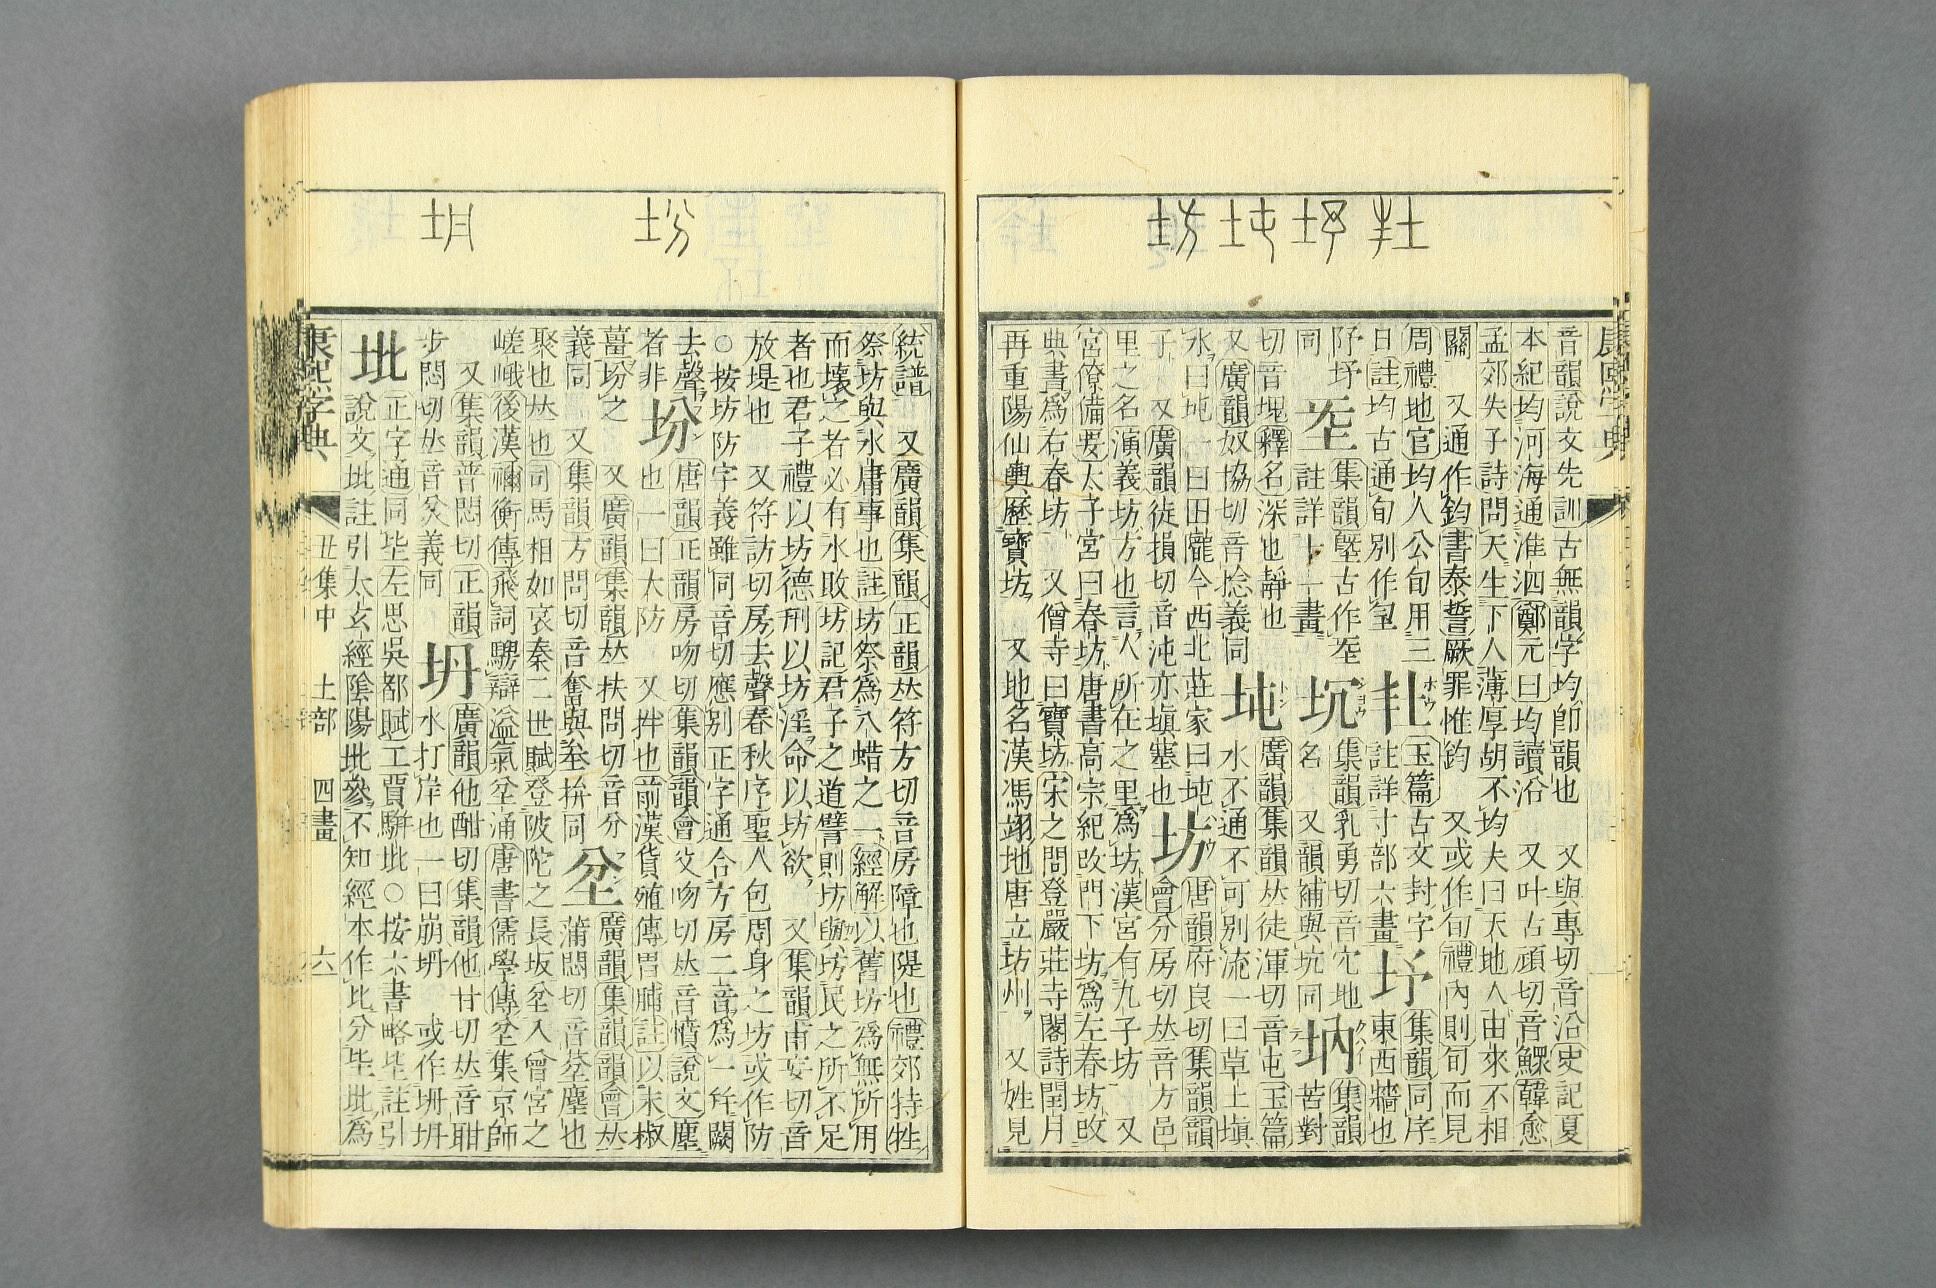 音韻說文先訓古無韻字均卽韻也　又與專切音沿史記夏
本紀均河海通淮泗鄭元曰均讀沿　又叶古頑切音鰥韓愈
孟郊失子詩問天生下人薄厚胡不均夫曰天地人由來不相
關　又通作鈞書泰誓厥罪惟鈞　又或作旬禮內則旬而見
周禮地官均人公旬用三
日註均古通旬別作㘬
𡉚
玉篇古文封字
註詳寸部六畫
㘧
集韻同序
東西牆也
㘧圩
同
坖
集韻墍古作坖
註詳十一畫
坈
集韻乳勇切音宂地
名　又韻補與坑同
㘨
集韻
苦對
切音塊釋名深也靜也
又廣韻奴協切音捻義同
坉
廣韻集韻𠀤徒渾切音屯玉篇
水不通不可別流一曰草土塡
水曰坉一曰田隴今西北莊家曰坉
子　又廣韻徒損切音沌亦塡塞也
坊
唐韻府良切集韻韻
會分房切𠀤音方邑
里之名演義坊方也言人所在之里爲坊漢宮有九子坊　又
宮僚備要太子宮曰春坊唐書高宗紀改門下坊爲左春坊改
典書爲右春坊　又僧寺曰寶坊宋之問登嚴莊寺閣詩閏月
再重陽仙輿歷寶坊　又地名漢馮翊地唐立坊州　又姓見
統譜　又廣韻集韻正韻𠀤符方切音房障也隄也禮郊特牲
祭坊與水庸事也註坊祭爲八蜡之一經解以舊坊爲無所用
而壞之者必有水敗坊記君子之道譬則坊與坊民之所不足
者也君子禮以坊德刑以坊淫命以坊欲　又集韻甫妄切音
放堤也　又符訪切房去聲春秋序聖人包周身之坊或作防
○按坊防字義雖同音切應別正字通合方房二音爲一幷闕
去聲
者非
坋
唐韻正韻房吻切集韻韻會父吻切𠀤音憤說文塵
也一曰大防　又拌也前漢貨殖傳胃脯註以末椒
薑坋之　又廣韻集韻𠀤扶問切音分
義同　又集韻方問切音奮與坌拚同
坌
廣韻集韻韻會𠀤
蒲悶切音坌塵也
聚也𠀤也司馬相如哀秦二世賦登陂陀之長坂坌入曾宮之
嵯峨後漢禰衡傳飛詞騁辯溢氣坌涌唐書儒學傳坌集京師
又集韻普悶切正韻
步悶切𠀤音㶨義同
坍
廣韻他酣切集韻他甘切𠀤音聃
水打岸也一曰崩坍　或作坍坍
坒
正字通同坒左思吳都賦工賈駢坒○按六書略坒註引
說文坒註引太玄經陰陽坒參不知經本作比分坒坒爲
康熙字典
丑集中　土部　四畫　六
坊坉㘧𡉚
坍　坋